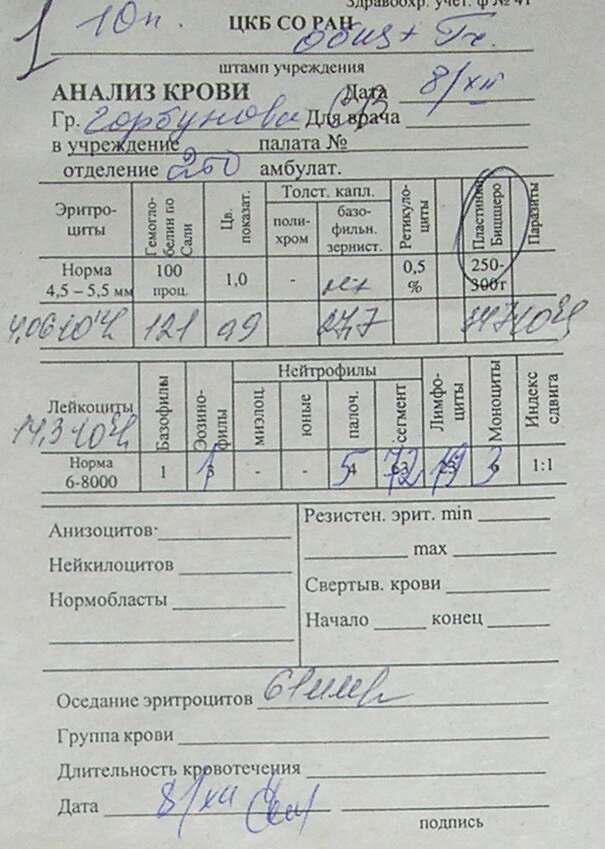 Здравоохр. учет. ф № 41
1 10п.
ЦКБ СО РАН
общ + Тг.
штамп учреждения
АНАЛИЗ КРОВИ Дата 8/XII
Гр. Горбунова Для врача
в учреждение палата №
отделение 260 амбулат.
Эритро-
циты
Гемогло-
белин по
Сали
Цв.
показат.
Толст. капл.
поли-
хром
базо-
фильн.
зернист.
Ретикуло-
циты
Пластинки
Бишшеро
Паразиты
Норма
4,5 – 5,5 мм
100
проц.
1,0
-
0,5
%
250-
300г
121 0,9 27,7
Лейкоциты
Базофилы
Эозино-
филы
Нейтрофилы
миэлоц.
юные
палоч.
сегмент
Лимфо-
циты
Моноциты
Индекс
сдвига
Норма
6-8000
1
3
-
-
4
63
23
6
1:1
1 5 72 19 3
Анизоцитов
Нейкилоцитов
Нормобласты
Резистен. эрит. min
max
Свертыв. крови
Начало конец
Оседание эритроцитов
Группа крови
Длительность кровотечения
Дата 8/XII
подпись